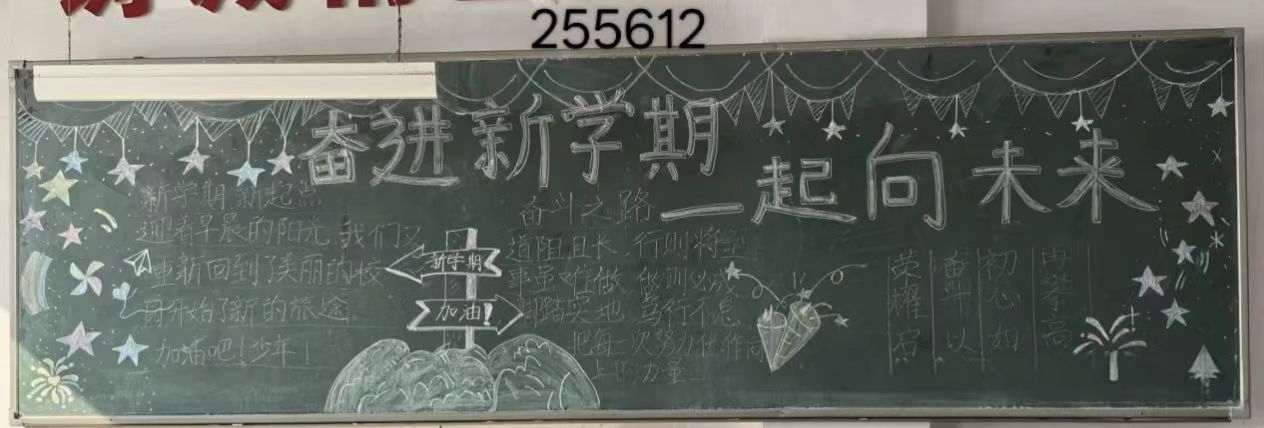 255612
奋进新学期
一起向未来
新学期新起点
迎着早晨的阳光 我们又
重新回到了美丽的校
园开始了新的旅途
加油吧！少年！
新学期
加油！
奋斗之路
道阻且长 行则将至
事虽难做 做则必成
脚踏实地 笃行不怠
把每一次努力化作向
上的力量
荣耀启
奋斗以
初心如
再攀高